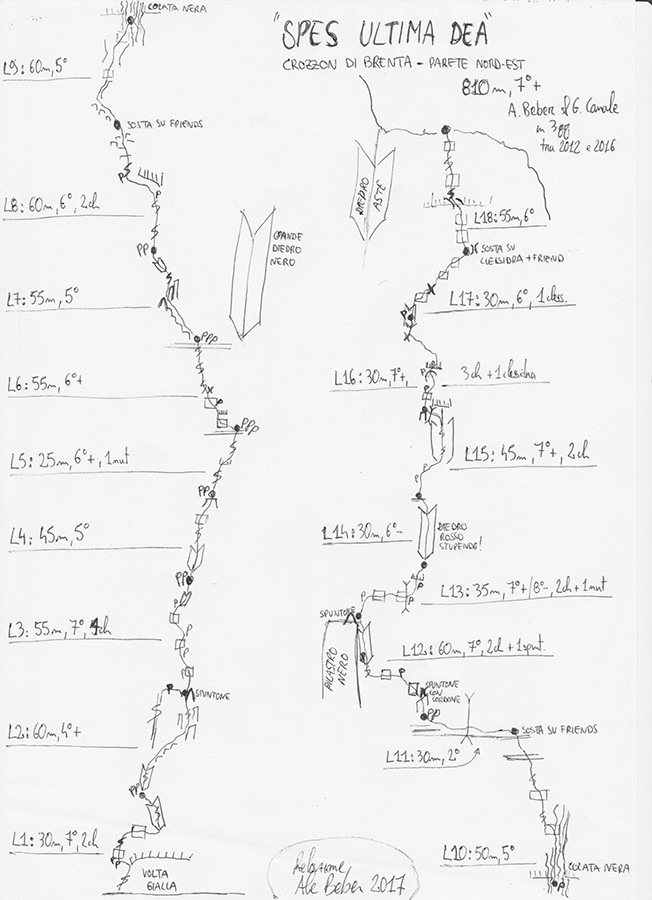 "SPES ULTIMA DEA"
CROZZON DI BRENTA - PARETE NORD-EST
810m, 7°+
A. Beber & G. Canale
in 3 gg
tra 2012 e 2016
COLATA NERA
L9: 60m, 5°
SOSTA SU FRIENDS
P
P
L8: 60m, 6°, 2ch
PP
GRANDE
DIEDRO
NERO
L7: 55m, 5°
PPP
L6: 55m, 6°+
P
PPP
L5: 25m, 6°+, 1nut
PP
L4: 45m, 5°
PP
P
L3: 55m, 7°, 4ch
P
SPUNTONE
L2: 60m, 4°+
PP
L1: 30m, 7°, 2ch
P
P
VOLTA
GIALLA
DIEDRO
ASTE
L18: 55m, 6°
SOSTA SU
CLESSIDRA + FRIEND
L17: 30m, 6°, 1cless.
P
L16: 30m, 7°+, 3ch + 1clessidra
P
P
L15: 45m, 7°+, 2ch
P
P
L14: 30m, 6°-
DIEDRO
ROSSO
STUPENDO!
L13: 35m, 7°+/8°-, 2ch + 1nut
P
P
SPUNTONE
PILASTRO
NERO
L12: 60m, 7°, 2ch + 1spunt.
P
P
SPUNTONE
CON
CORDONE
PP
SOSTA SU FRIENDS
L11: 30m, 2°
L10: 50m, 5°
COLATA NERA
P
Relazione
Ale Beber 2017